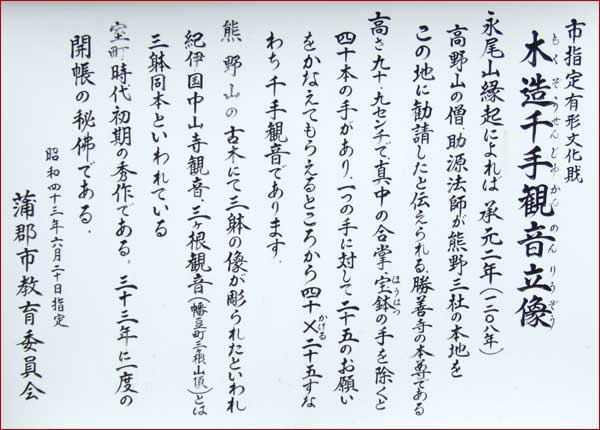 市指定有形文化戝
木造千手観音立像
もくぞうせんじゅかんのんりうぞう
永尾山縁起によれば 承元二年(一二〇八年)
高野山の僧、助源法師が熊野三社の本地を
この地に勧請したと伝えられる、勝善寺の本尊である
高さ九十・九センチで真中の合掌、宝鉢の手を除くと
ほうはつ
四十本の手があり、一つの手に対して二十五のお願い
をかなえてもらえるところから四十×二十五すな
かける
わち千手観音であります。
熊野山の古木にて三躰の像が彫られたといわれ
紀伊国中山寺観音、三ヶ根観音(幡豆町三ヶ根山頂)とは
三躰同本といわれている
室町時代初期の秀作である。三十三年に一度の
開帳の秘佛である.
昭和四十三年六月二十日指定
蒲郡市教育委員会